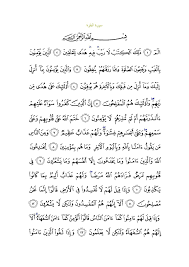 سورة البقرة
بسم الله الرحمن الرحيم
الٓمٓ ۝ ذَٰلِكَ ٱلْكِتَٰبُ لَا رَيْبَ فِيهِ هُدًى لِّلْمُتَّقِينَ ۝ ٱلَّذِينَ يُؤْمِنُونَ
بِٱلْغَيْبِ وَيُقِيمُونَ ٱلصَّلَوٰةَ وَمِمَّا رَزَقْنَٰهُمْ يُنفِقُونَ ۝ وَٱلَّذِينَ يُؤْمِنُونَ
بِمَآ أُنزِلَ إِلَيْكَ وَمَآ أُنزِلَ مِن قَبْلِكَ وَبِٱلْءَاخِرَةِ هُمْ يُوقِنُونَ ۝
أُو۟لَٰٓئِكَ عَلَىٰ هُدًى مِّن رَّبِّهِمْ وَأُو۟لَٰٓئِكَ هُمُ ٱلْمُفْلِحُونَ ۝ إِنَّ ٱلَّذِينَ كَفَرُوا۟ سَوَآءٌ عَلَيْهِمْ
ءَأَنذَرْتَهُمْ أَمْ لَمْ تُنذِرْهُمْ لَا يُؤْمِنُونَ ۝ خَتَمَ ٱللَّهُ عَلَىٰ قُلُوبِهِمْ وَعَلَىٰ
سَمْعِهِمْ وَعَلَىٰٓ أَبْصَٰرِهِمْ غِشَٰوَةٌ وَلَهُمْ عَذَابٌ عَظِيمٌ ۝ وَمِنَ ٱلنَّاسِ
مَن يَقُولُ ءَامَنَّا بِٱللَّهِ وَبِٱلْيَوْمِ ٱلْءَاخِرِ وَمَا هُم بِمُؤْمِنِينَ ۝ يُخَٰدِعُونَ
ٱللَّهَ وَٱلَّذِينَ ءَامَنُوا۟ وَمَا يَخْدَعُونَ إِلَّآ أَنفُسَهُمْ وَمَا يَشْعُرُونَ ۝
فِى قُلُوبِهِم مَّرَضٌ فَزَادَهُمُ ٱللَّهُ مَرَضًا وَلَهُمْ عَذَابٌ أَلِيمٌۢ بِمَا كَانُوا۟
يَكْذِبُونَ ۝ وَإِذَا قِيلَ لَهُمْ لَا تُفْسِدُوا۟ فِى ٱلْأَرْضِ قَالُوٓا۟ إِنَّمَا نَحْنُ
مُصْلِحُونَ ۝ أَلَآ إِنَّهُمْ هُمُ ٱلْمُفْسِدُونَ وَلَٰكِن لَّا يَشْعُرُونَ ۝
وَإِذَا قِيلَ لَهُمْ ءَامِنُوا۟ كَمَآ ءَامَنَ ٱلنَّاسُ قَالُوٓا۟ أَنُؤْمِنُ كَمَآ ءَامَنَ ٱلسُّفَهَآءُ أَلَآ
إِنَّهُمْ هُمُ ٱلسُّفَهَآءُ وَلَٰكِن لَّا يَعْلَمُونَ ۝ وَإِذَا لَقُوا۟ ٱلَّذِينَ ءَامَنُوا۟